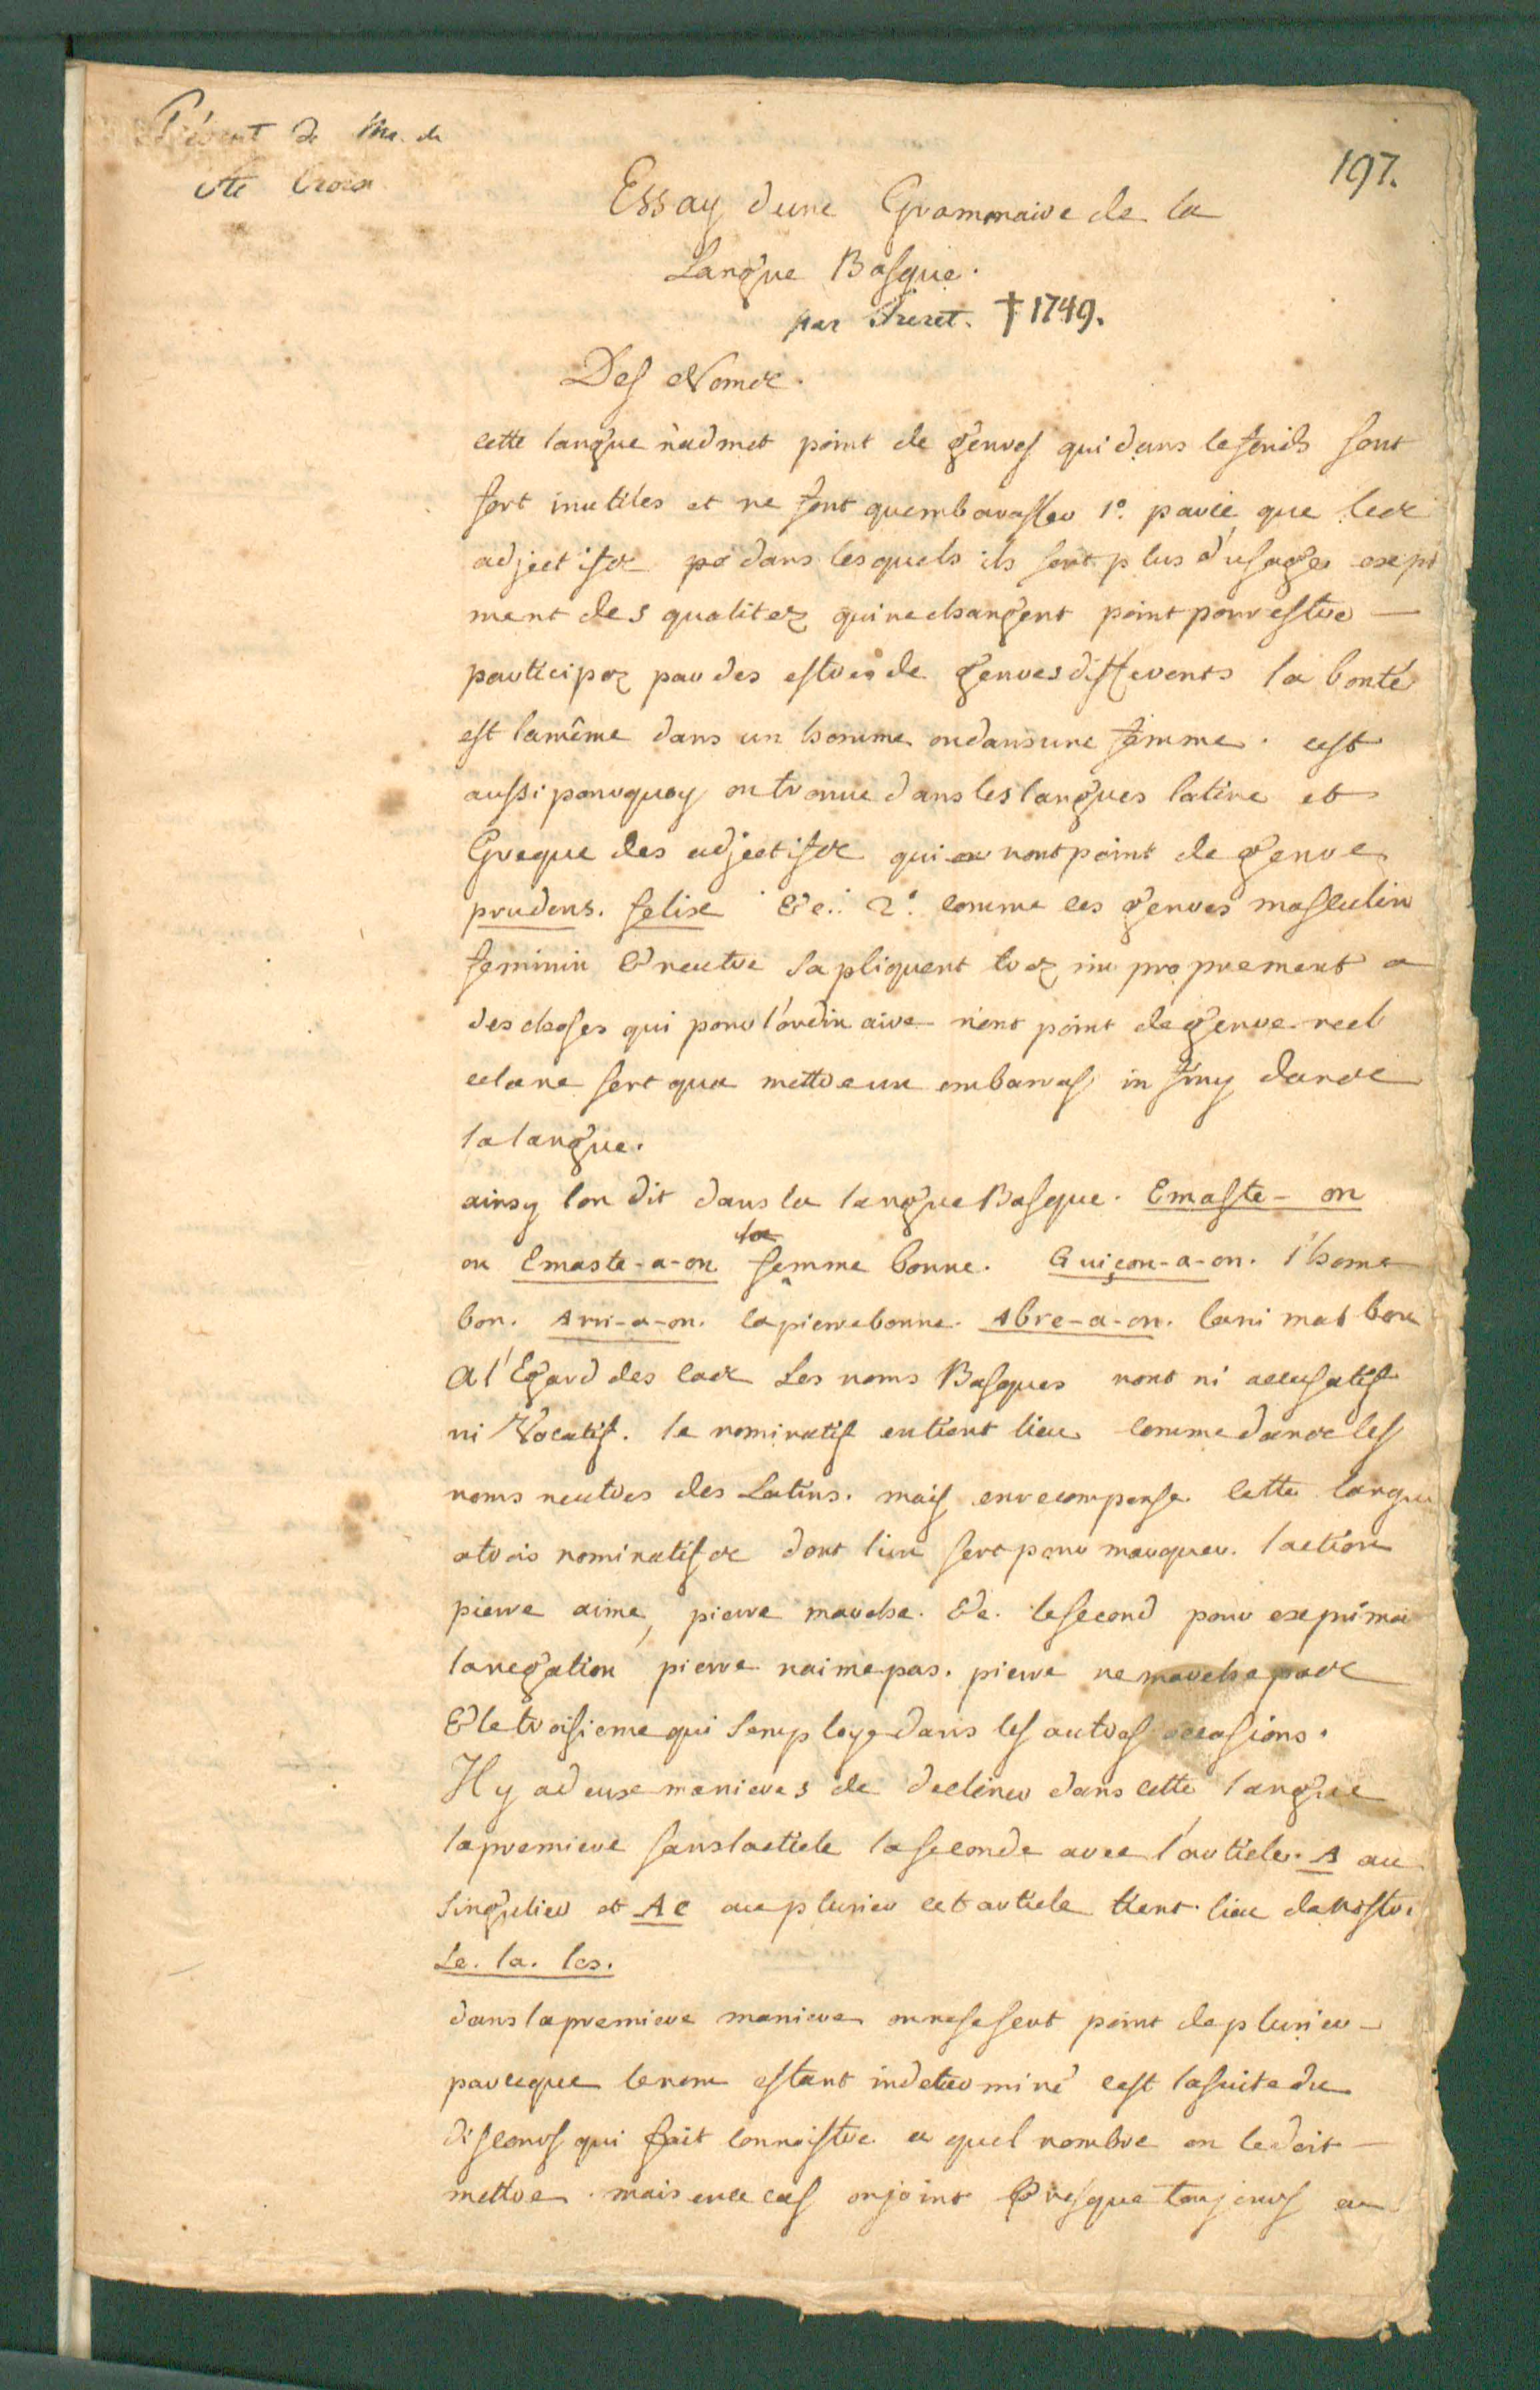 Présent de Mr. de
Ste Croix
197.
Essay dune Grammaire de la
Langue Basque.
par Freret. † 1749.
Des Noms.
cette langue nadmet point de genres qui dans le fonds sont
fort inutiles et ne font quembarasser 1º. parce que les
adjectifs dans lesquels ils sont plus d'usages expri
ment des qualitez qui ne changent point pour estre
participez par des estres de genres differents la bonté
est la même dans un homme ou dans une femme. cest
aussi pourquoy on trouve dans les langues latine et
Greque des adjectifs qui nont point de genre
prudens. felix &c. 2º. comme les genres masculin
feminin & neutre sapliquent trez improprement a
des choses qui pour l'ordinaire n'ont point de genre reel
cela ne sert qua mettre un embarras infiny dans
la langue.
ainsy lon dit dans la langue Basque. Emaste-on
ou Emaste-a-on la femme bonne. Guiçon-a-on. l'home
bon. Arri-a-on. la pierre bonne. Abre-a-on. lanimal bon
A l'Egard des cas Les noms Basques nont ni accusatif
ni Vocatif. le nominatif en tient lieu comme dans les
noms neutres des Latins. mais en recompense cette langue
a trois nominatifs dont lun sert pour marquer laction
pierre aime, pierre marche. &c. le second pour exprimer
la negation pierre naime pas. pierre ne marche pas
& le troisieme qui semploye dans les autres occasions.
Il y a deux manieres de decliner dans cette langue
la premiere sans lacticle la seconde avec l'article. A au
singulier et Ac au plurier cet article tient lieu de nostre
Le. la. les.
dans la premiere maniere on ne se sert point de plurier
parceque le nom estant indeterminé cest la suite du
discours qui fait connoistre a quel nombre on le doit
mettre. mais en ce cas on joint Presque toujours au